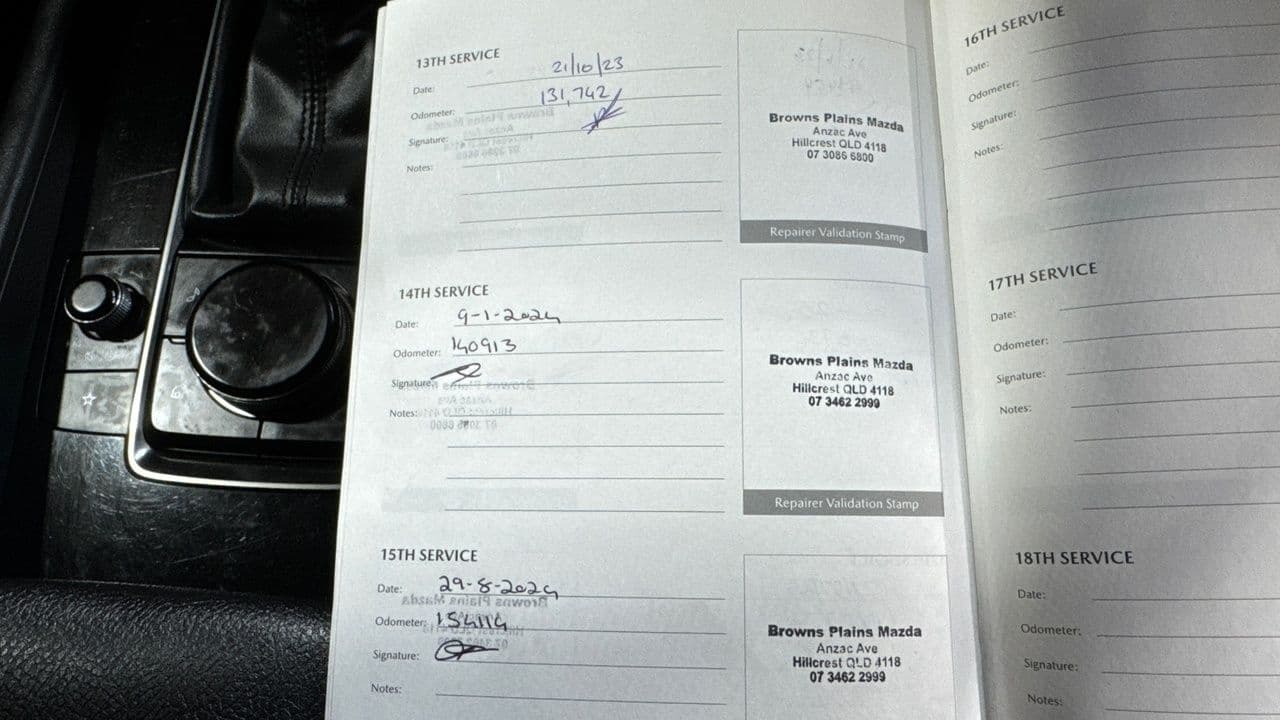 13TH SERVICE
Date: 21/10/23
Odometer: 131,742
Signature:
Notes:
Browns Plains Mazda
Anzac Ave
Hillcrest QLD 4118
07 3086 6800
Repairer Validation Stamp
14TH SERVICE
Date: 9-1-2024
Odometer: 140913
Signature:
Notes:
Browns Plains Mazda
Anzac Ave
Hillcrest QLD 4118
07 3462 2999
Repairer Validation Stamp
15TH SERVICE
Date: 29-8-2024
Odometer: 154114
Signature:
Notes:
Browns Plains Mazda
Anzac Ave
Hillcrest QLD 4118
07 3462 2999
16TH SERVICE
Date:
Odometer:
Signature:
Notes:
17TH SERVICE
Date:
Odometer:
Signature:
Notes:
18TH SERVICE
Date:
Odometer:
Signature:
Notes: